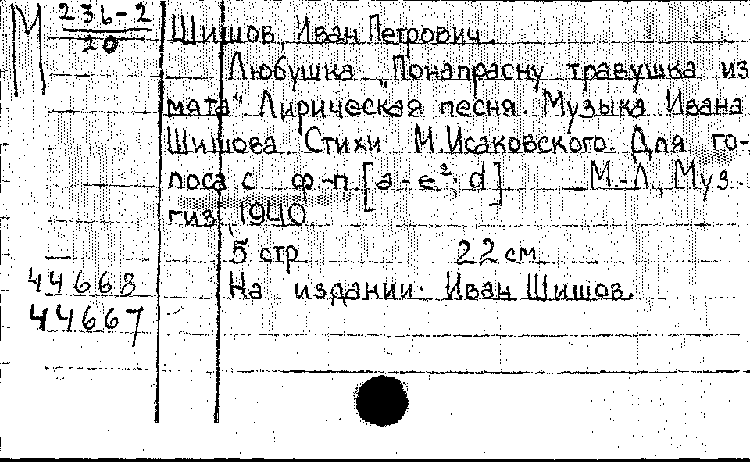 М 236-2
20
Шишов, Иван Петрович.
Любушка „Понапрасну травушка из
мята“ Лирическая песня. Музыка Ивана
Шишова. Стихи М. Исаковского. Для го-
лоса с ф-п. [a-e²; d] М.-Л., Муз-
гиз, 1940
5 стр. 22 см.
44668
На издании: Иван Шишов.
44667